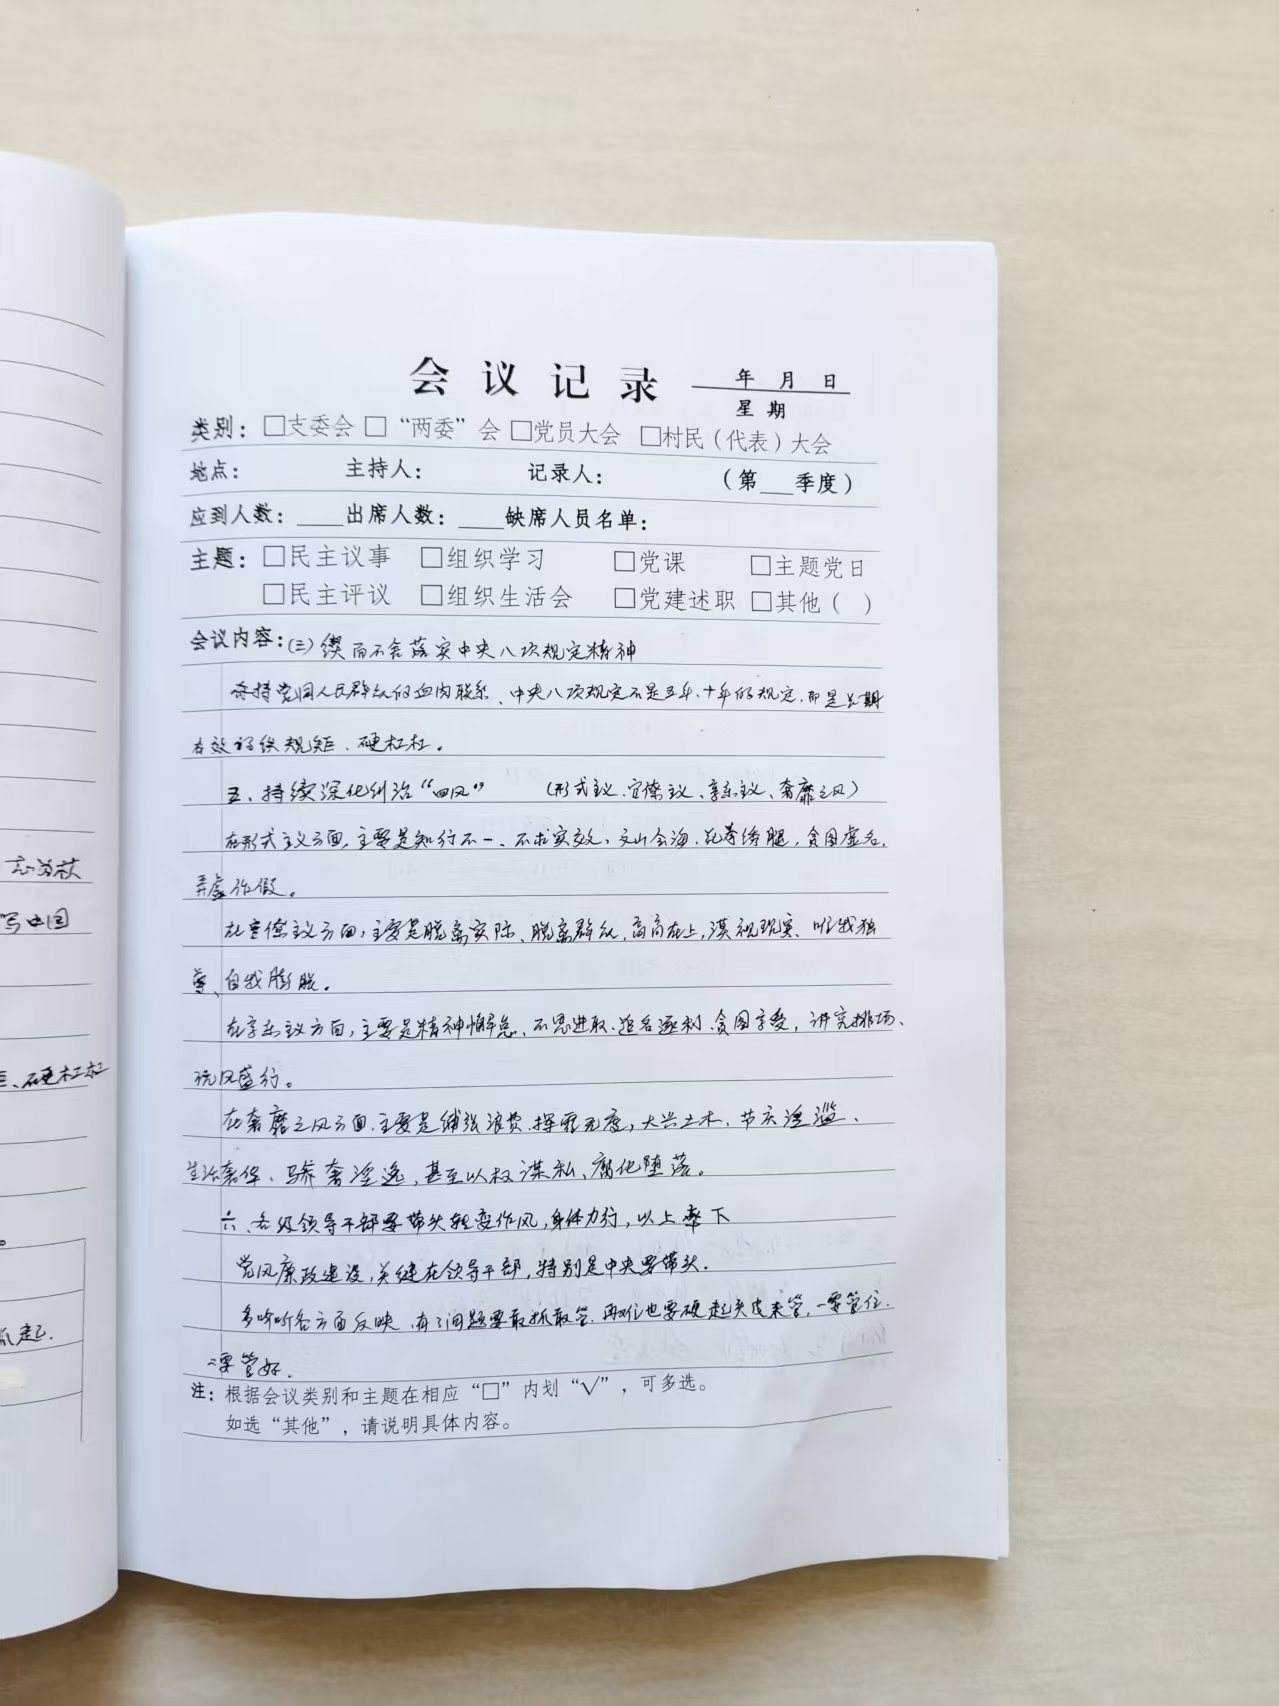 志为荻
写中国
三、硬杠杠
抓起.
会议记录
年 月 日
星期
类别：□支委会 □“两委”会 □党员大会 □村民（代表）大会
地点： 主持人： 记录人： （第___季度）
应到人数：____出席人数：____缺席人员名单：
主题：□民主议事 □组织学习 □党课 □主题党日
□民主评议 □组织生活会 □党建述职 □其他（ ）
会议内容：(三) 锲而不舍落实中央八项规定精神
保持党同人民群众的血肉联系、中央八项规定不是五年、十年的规定，而是长期
有效的铁规矩、硬杠杠。
五、持续深化纠治“四风” （形式主义、官僚主义、享乐主义、奢靡之风）
在形式主义方面，主要是知行不一、不求实效，文山会海、花拳绣腿，贪图虚名，
弄虚作假。
在官僚主义方面，主要是脱离实际、脱离群众，高高在上，漠视现实、唯我独
尊、自我膨胀。
在享乐主义方面，主要是精神懈怠、不思进取、追名逐利、贪图享受，讲究排场、
玩风盛行。
在奢靡之风方面，主要是铺张浪费、挥霍无度，大兴土木、节庆泛滥、
生活奢华、骄奢淫逸，甚至以权谋私、腐化堕落。
六、各级领导干部要带头转变作风，身体力行，以上率下
党风廉政建设，关键在领导干部，特别是中央要带头.
多听听各方面反映，有了问题要敢抓敢管，再难也要硬起头皮来管，一要管住.
二要管好.
注：根据会议类别和主题在相应“□”内划“√”，可多选。
如选“其他”，请说明具体内容。